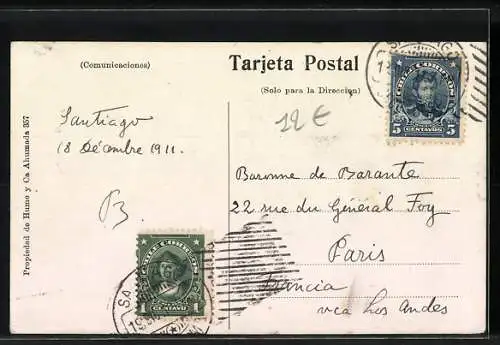 Tarjeta Postal
(Comunicaciones)
(Solo para la Direccion)
Propiedad de Hume y Ca Ahumada 357
Santiago
18 Décembre 1911.
B
12 €
CHILE CORREOS
5 CENTAVOS 5
Baronne de Barante
22 rue du Général Foy
Paris
Francia
via Los Andes
CHILE CORREOS
1 CENTAVO 1